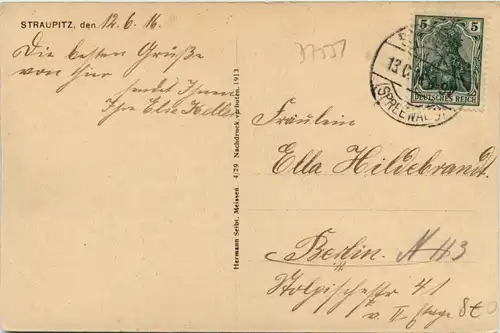 STRAUPITZ, den 12.6.16.
Die besten Grüße
von hier
sendet Ihnen
Ihre Elie Keller
Hermann Seibt, Meissen 4/29 Nachdruck verboten. 1913.
37551
5 5
DEUTSCHES REICH
13
(SPREEWALD)
Fräulein
Ella Hildebrandt.
Berlin. N 113
Stolpischestr 41
v. II Etage
8€